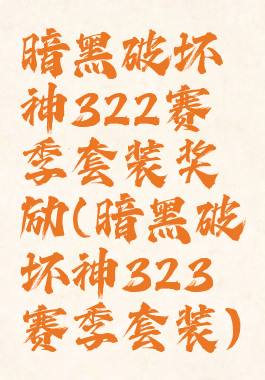 暗黑破坏
神322赛
季套装奖
励(暗黑破
坏神323
赛季套装)